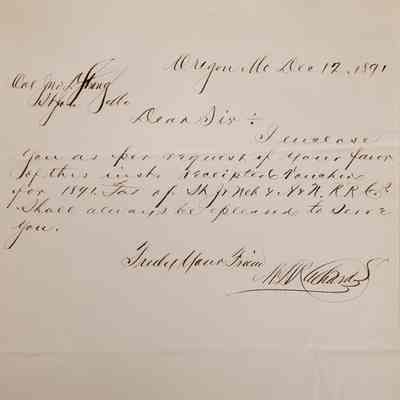 Oregon Mo Dec 12, 1891
Col Jno. D. Strong
St Jos.
Dear Sir :
I enclose
you as per request of your favor
of this inst. receipted Voucher
for 1891. Tax of St Jo & N. R. R. Co.
Shall always be pleased to serve
you.
Truly Your Friend
Richards